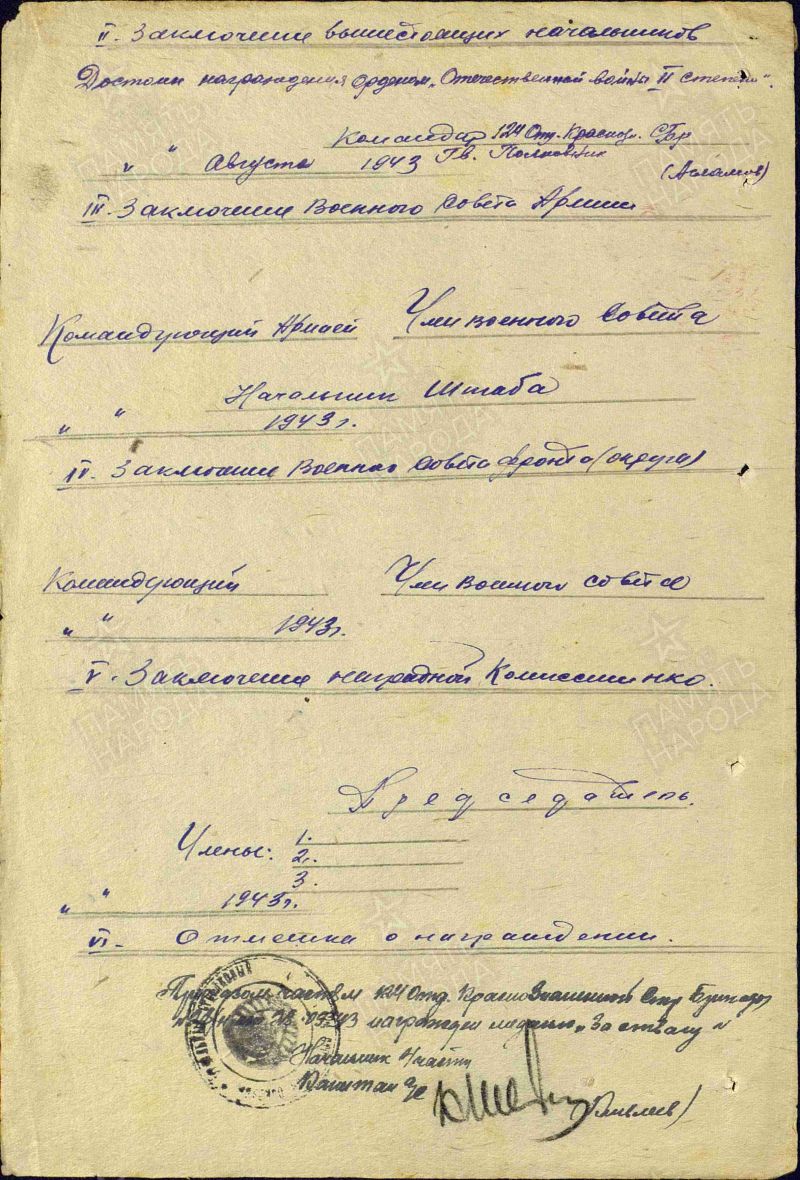 II. Заключение вышестоящих начальников
Достоин награждения орденом „Отечественной войны II степени".
Командир 124 Отд. Красноз. СБр
„ " Августа 1943 Гв. Полковник
(Асламов)
III. Заключение Военного Совета Армии
Командующий Армией Член Военного Совета
Начальник Штаба
„ " 1943 г.
IV. Заключение Военного Совета фронта (округа)
Командующий Член Военного Совета
„ " 1943 г.
V. Заключение наградной Комиссии НКО.
Председатель.
Члены: 1.
2.
3.
„ " 1943 г.
VI. Отметка о награждении.
Приказом частям 124 Отд. Краснознаменной Стр Бригады
награжден медалью „За отвагу"
Начальник 4 части
Капитан а/с
ПАМЯТЬ НАРОДА